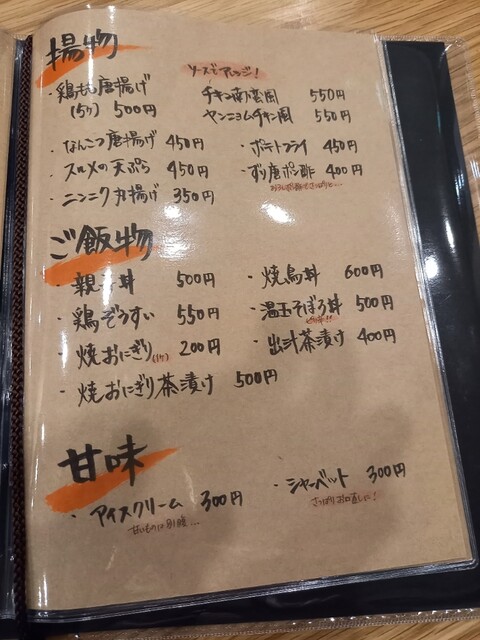 揚物
ソースでアレンジ!
・鶏もも唐揚げ
(5ヶ) 500円
チキン南蛮風 550円
ヤンニョムチキン風 550円
・なんこつ唐揚げ 450円
・ポテトフライ 450円
・スルメの天ぷら 450円
・ずり唐ポン酢 400円
・ニンニク丸揚げ 350円
ご飯物
・親子丼 500円
・焼鳥丼 600円
・鶏ぞうすい 550円
・温玉そぼろ丼 500円
・焼おにぎり(1ヶ) 200円
・出汁茶漬け 400円
・焼おにぎり茶漬け 500円
甘味
・アイスクリーム 300円
甘いものは別腹...
・シャーベット 300円
さっぱりお口直しに!